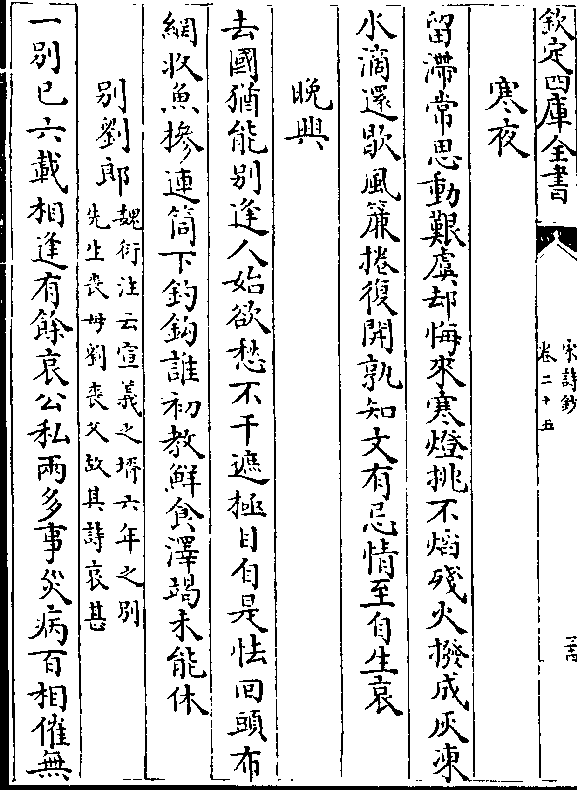 欽定四庫全書
宋詩鈔
卷二十五
寒夜
留滯常思動艱虞却悔來寒燈挑不熖殘火撥成灰凍
水滴還歇風簾捲復開孰知文有忌情至自生哀
晚興
去國猶能别逢人始欲愁不干遮極目自是怯回頭布
網收魚摻連筒下釣鈎誰初教鮮食澤竭未能休
别劉郎
魏衍注云宣義之壻六年之别
先生喪母劉喪父故其詩哀甚
一别已六載相逢有餘哀公私兩多事災病百相催無